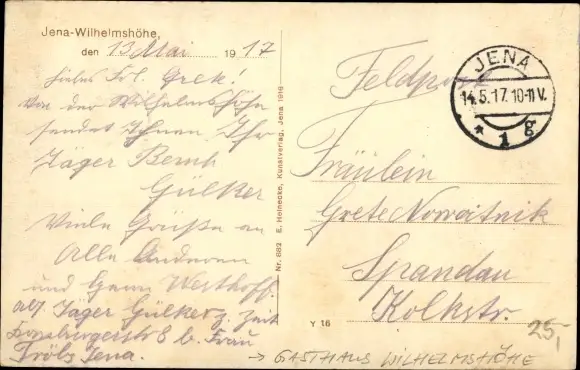 Jena-Wilhelmshöhe,
den 13 Mai 1917
Liebes Frl. Grete!
Von der Wilhelmshöhe
sendet Ihnen Ihr
Jäger Bernh
Gülker
Viele Grüße an
Alle Anderen
und Herrn Westhoff.
Abs. Jäger Gülker z. Zeit
b. Frau
Jena.
Nr. 682 E. Heinecke, Kunstverlag, Jena 1916
Feldpost
JENA
14.5.17. 10-11 V.
* 1 g
Fräulein
Grete Nowaitnik
Spandau
Kolkstr.
Y 16
25,-
→ GASTHAUS WILHELMSHÖHE